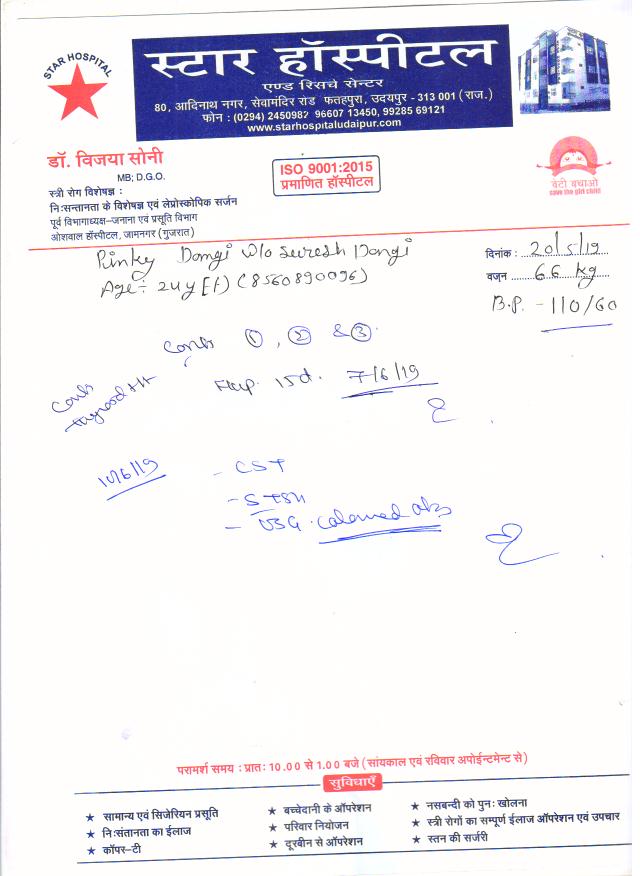 STAR HOSPITAL
स्टार हॉस्पीटल
एण्ड रिसर्च सेन्टर
80, आदिनाथ नगर, सेवामंदिर रोड फतहपुरा, उदयपुर - 313 001 (राज.)
फोन : (0294) 2450982 96607 13450, 99285 69121
www.starhospitaludaipur.com
डॉ. विजया सोनी
MB; D.G.O.
स्त्री रोग विशेषज्ञ :
निःसन्तानता के विशेषज्ञ एवं लेप्रोस्कोपिक सर्जन
पूर्व विभागाध्यक्ष-जनाना एवं प्रसूति विभाग
ओशवाल हॉस्पीटल, जामनगर (गुजरात)
ISO 9001:2015
प्रमाणित हॉस्पीटल
बेटी बचाओ
save the girl child
Pinky Dangi W/o Suresh Dangi
Age:- 24y [f] (8560890096)
दिनांक : 20/5/19
वजन 66 kg
B.P. - 110/60
①, ② & ③
15d. 7/6/19
10/6/19
- CST
- S TSH
- USG
परामर्श समय : प्रातः 10.00 से 1.00 बजे (सांयकाल एवं रविवार अपोईन्टमेन्ट से)
सुविधाएँ
★ सामान्य एवं सिजेरियन प्रसूति ★ बच्चेदानी के ऑपरेशन ★ नसबन्दी को पुनः खोलना
★ निःसंतानता का ईलाज ★ परिवार नियोजन ★ स्त्री रोगों का सम्पूर्ण ईलाज ऑपरेशन एवं उपचार
★ कॉपर-टी ★ दूरबीन से ऑपरेशन ★ स्तन की सर्जरी